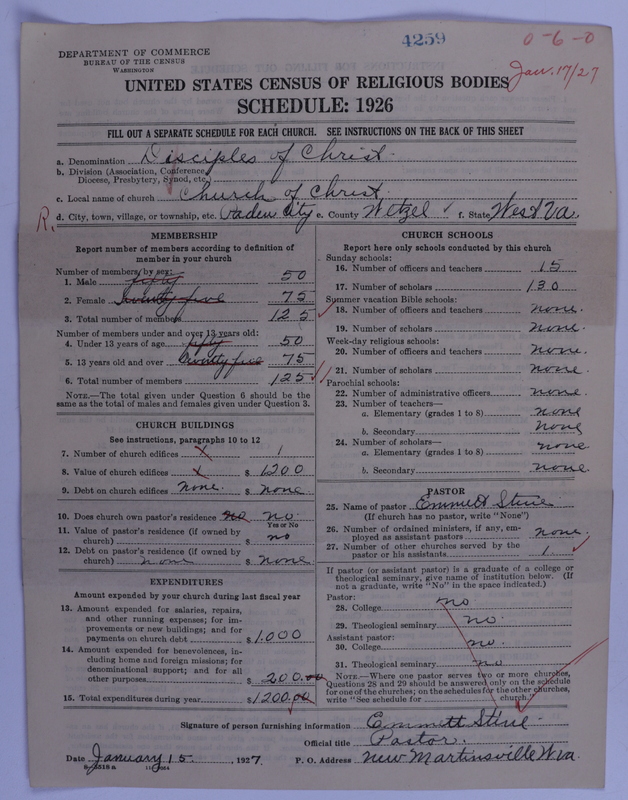 4259
0-6-0
DEPARTMENT OF COMMERCE
BUREAU OF THE CENSUS
WASHINGTON
Jan. 17/27
UNITED STATES CENSUS OF RELIGIOUS BODIES
SCHEDULE: 1926
FILL OUT A SEPARATE SCHEDULE FOR EACH CHURCH. SEE INSTRUCTIONS ON THE BACK OF THIS SHEET
a. Denomination Disciples of Christ
b. Division (Association, Conference, Diocese, Presbytery, Synod, etc.)
c. Local name of church Church of Christ
R. d. City, town, village, or township, etc. Paden City e. County Wetzel f. State West Va.
MEMBERSHIP
Report number of members according to definition of
member in your church
Number of members by sex:
1. Male fifty 50
2. Female seventy five 75
3. Total number of members 125
Number of members under and over 13 years old:
4. Under 13 years of age fifty 50
5. 13 years old and over seventy five 75
6. Total number of members 125
NOTE.—The total given under Question 6 should be
same as the total of males and females given under Question 3.
CHURCH BUILDINGS
See instructions, paragraphs 10 to 12
7. Number of church edifices 1
8. Value of church edifices $ 1200
9. Debt on church edifices none $ none
10. Does church own pastor's residence no no.
Yes or No
11. Value of pastor's residence (if owned by
church) $ no
12. Debt on pastor's residence (if owned by
church) none $ none
EXPENDITURES
Amount expended by your church during last fiscal year
13. Amount expended for salaries, repairs,
and other running expenses; for im-
provements or new buildings; and for
payments on church debt $ 1.000
14. Amount expended for benevolences, in-
cluding home and foreign missions; for
denominational support; and for all
other purposes $ 200.00
15. Total expenditures during year $ 1200.00
CHURCH SCHOOLS
Report here only schools conducted by this church
Sunday schools:
16. Number of officers and teachers 15
17. Number of scholars 130
Summer vacation Bible schools:
18. Number of officers and teachers none.
19. Number of scholars none.
Week-day religious schools:
20. Number of officers and teachers none.
21. Number of scholars none.
Parochial schools:
22. Number of administrative officers none.
23. Number of teachers—
a. Elementary (grades 1 to 8) none
b. Secondary none
24. Number of scholars—
a. Elementary (grades 1 to 8) none
b. Secondary none.
PASTOR
25. Name of pastor Emmett Stine
(If church has no pastor, write "None")
26. Number of ordained ministers, if any, em-
ployed as assistant pastors none.
27. Number of other churches served by the
pastor or his assistants 1
If pastor (or assistant pastor) is a graduate of a college or
theological seminary, give name of institution below. (If
not a graduate, write "No" in the space indicated.)
Pastor:
28. College no
29. Theological seminary no.
Assistant pastor:
30. College no.
31. Theological seminary no
NOTE.—Where one pastor serves two or more churches,
Questions 28 and 29 should be answered only on the schedule
for one of the churches; on the schedules for the other churches,
write "See schedule for church."
Signature of person furnishing information Emmett Stine
Official title Pastor.
Date January 15, 1927. P. O. Address New Martinsville W.va.